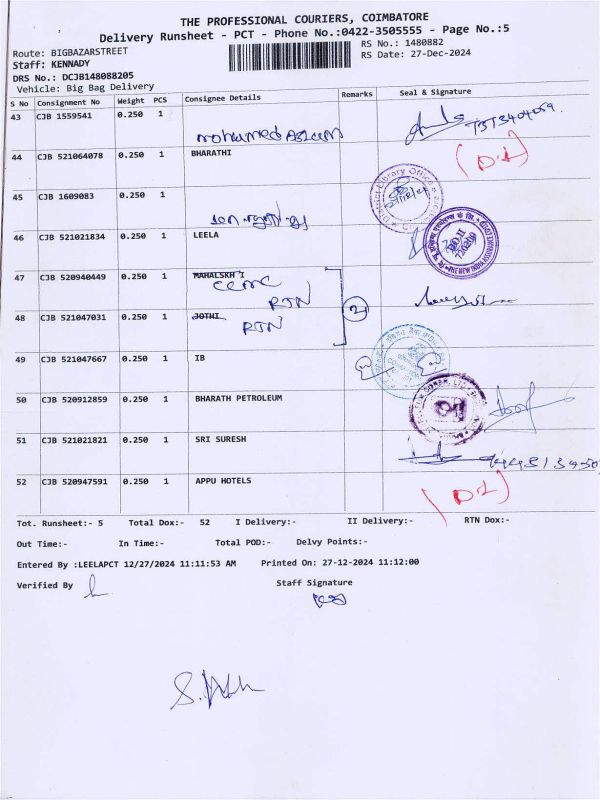 THE PROFESSIONAL COURIERS, COIMBATORE
Delivery Runsheet - PCT - Phone No.:0422-3505555 - Page No.:5
Route: BIGBAZARSTREET
RS No.: 1480882
Staff: KENNADY
RS Date: 27-Dec-2024
DRS No.: DCJB148088205
Vehicle: Big Bag Delivery
S No Consignment No Weight PCS Consignee Details Remarks Seal & Signature
43 CJB 1559541 0.250 1
mohamed Aslam
44 CJB 521064078 0.250 1 BHARATHI
(D.L)
45 CJB 1609083 0.250 1
District Library Office
46 CJB 521021834 0.250 1 LEELA
THE NEW INDIA ASSURANCE
47 CJB 520940449 0.250 1 MAHALSKH I
RTN
2
48 CJB 521047031 0.250 1 JOTHI
RTN
49 CJB 521047667 0.250 1 IB
50 CJB 520912859 0.250 1 BHARATH PETROLEUM
51 CJB 521021821 0.250 1 SRI SURESH
52 CJB 520947591 0.250 1 APPU HOTELS
(D.L)
Tot. Runsheet:- 5 Total Dox:- 52 I Delivery:- II Delivery:- RTN Dox:-
Out Time:- In Time:- Total POD:- Delvy Points:-
Entered By :LEELAPCT 12/27/2024 11:11:53 AM Printed On: 27-12-2024 11:12:00
Verified By Staff Signature